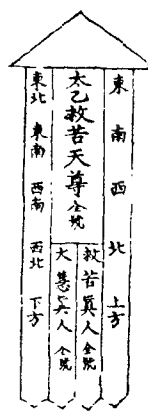 東 南 西 北 上方
太乙救苦天尊全號
救苦眞人全號
大慧眞人全號
東北 東南 西南 西北 下方